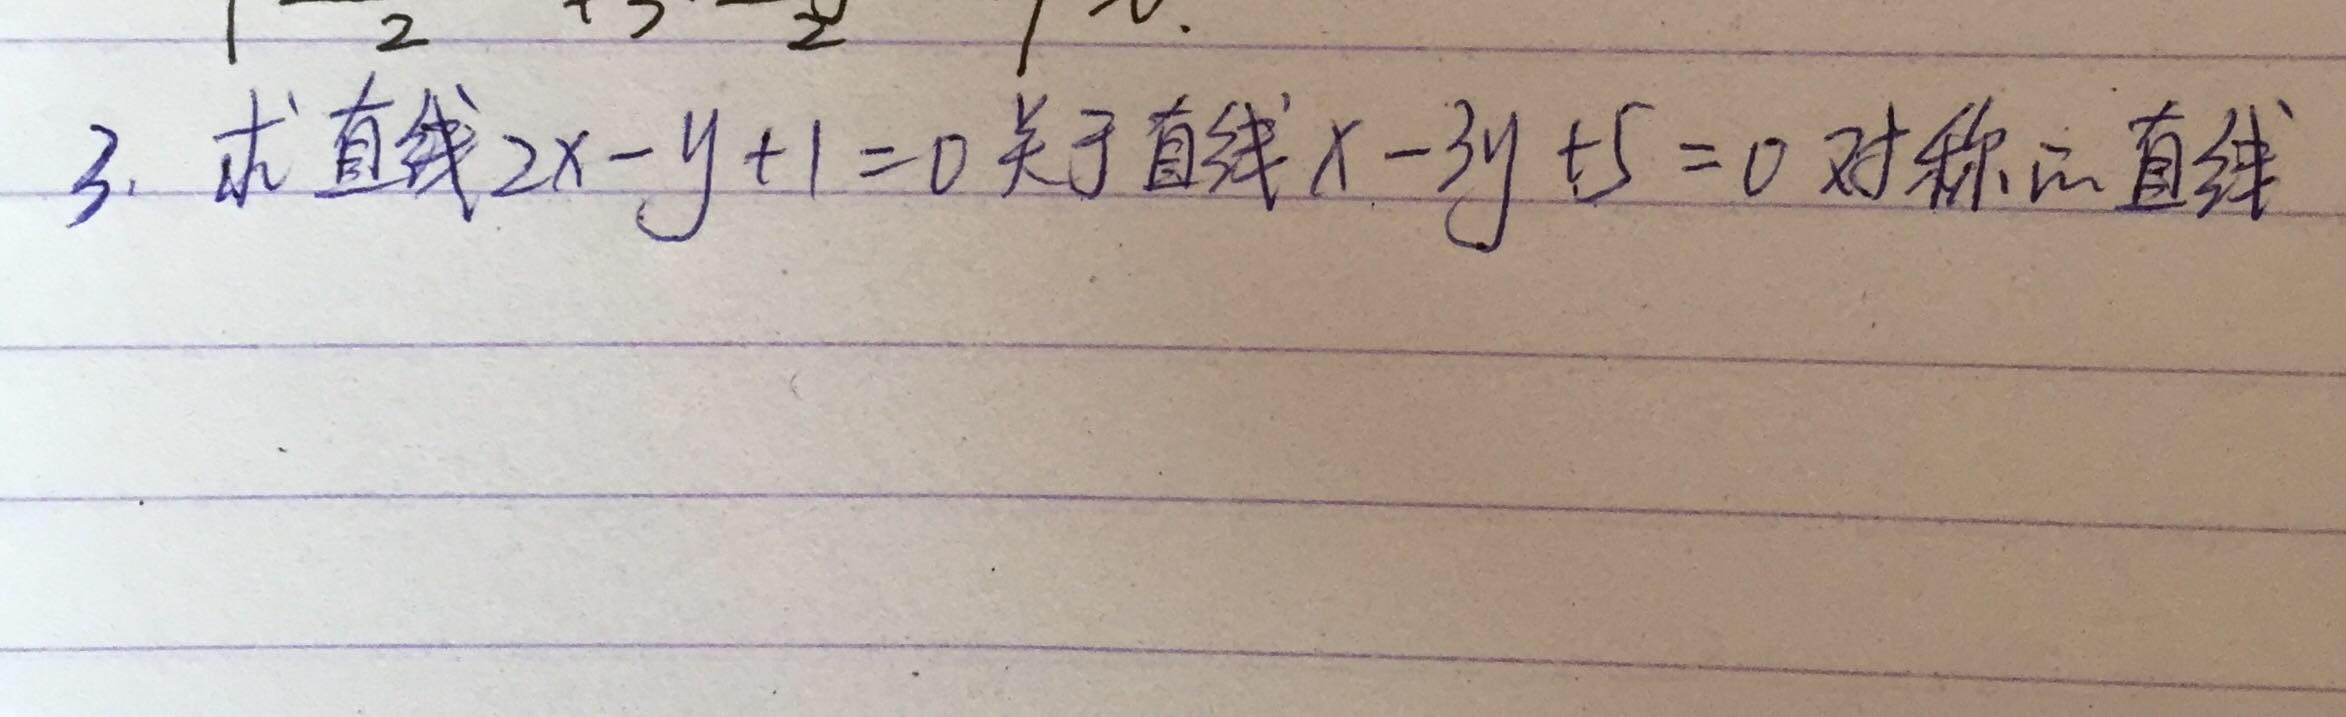 3. 求直线2x-y+1=0关于直线x-3y+5=0对称的直线